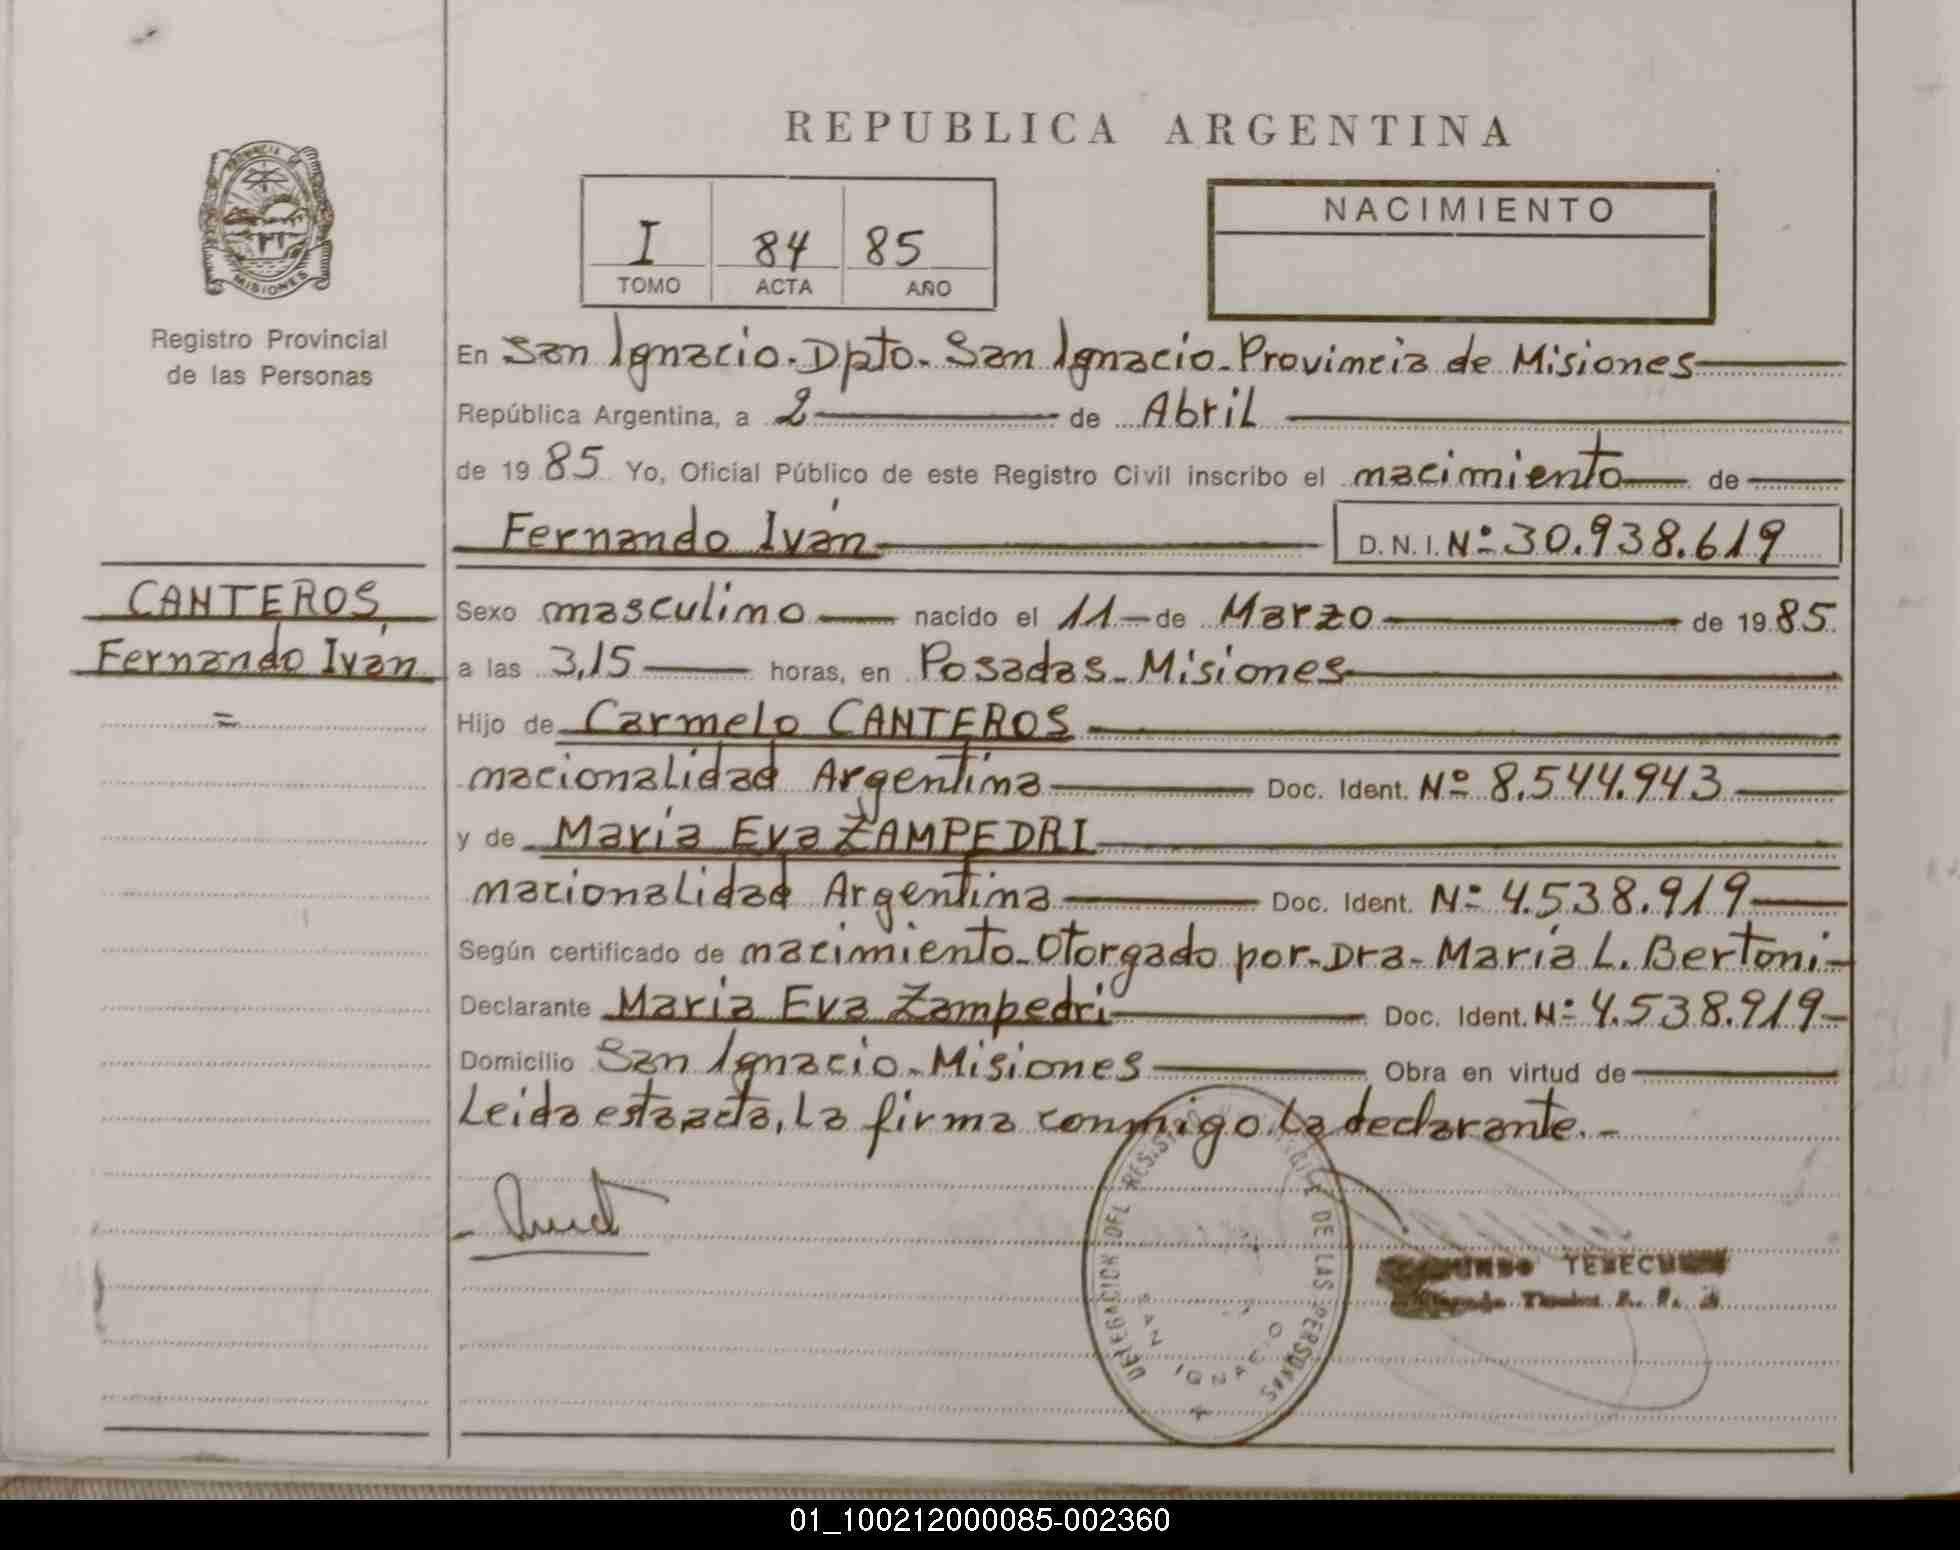 REPUBLICA ARGENTINA
PROVINCIA DE MISIONES
Registro Provincial
de las Personas
I 84 85
TOMO ACTA AÑO
NACIMIENTO
En San Ignacio. Dpto. San Ignacio. Provincia de Misiones
República Argentina, a 2 de Abril
de 1985 Yo, Oficial Público de este Registro Civil inscribo el nacimiento de
Fernando Iván D.N.I. Nº 30.938.619
CANTEROS,
Fernando Iván
=
Sexo masculino nacido el 11 de Marzo de 1985.
a las 3,15 horas, en Posadas. Misiones
Hijo de Carmelo CANTEROS
nacionalidad Argentina Doc. Ident. Nº 8.544.943
y de María Eva ZAMPEDRI
nacionalidad Argentina Doc. Ident. Nº 4.538.919
Según certificado de nacimiento. Otorgado por. Dra. María L. Bertoni
Declarante María Eva Zampedri Doc. Ident. Nº 4.538.919
Domicilio San Ignacio. Misiones Obra en virtud de
Leida esta acta, la firma conmigo la declarante.-
DELEGACION DEL REGISTRO CIVIL DE LAS PERSONAS
SAN IGNACIO
01_100212000085-002360